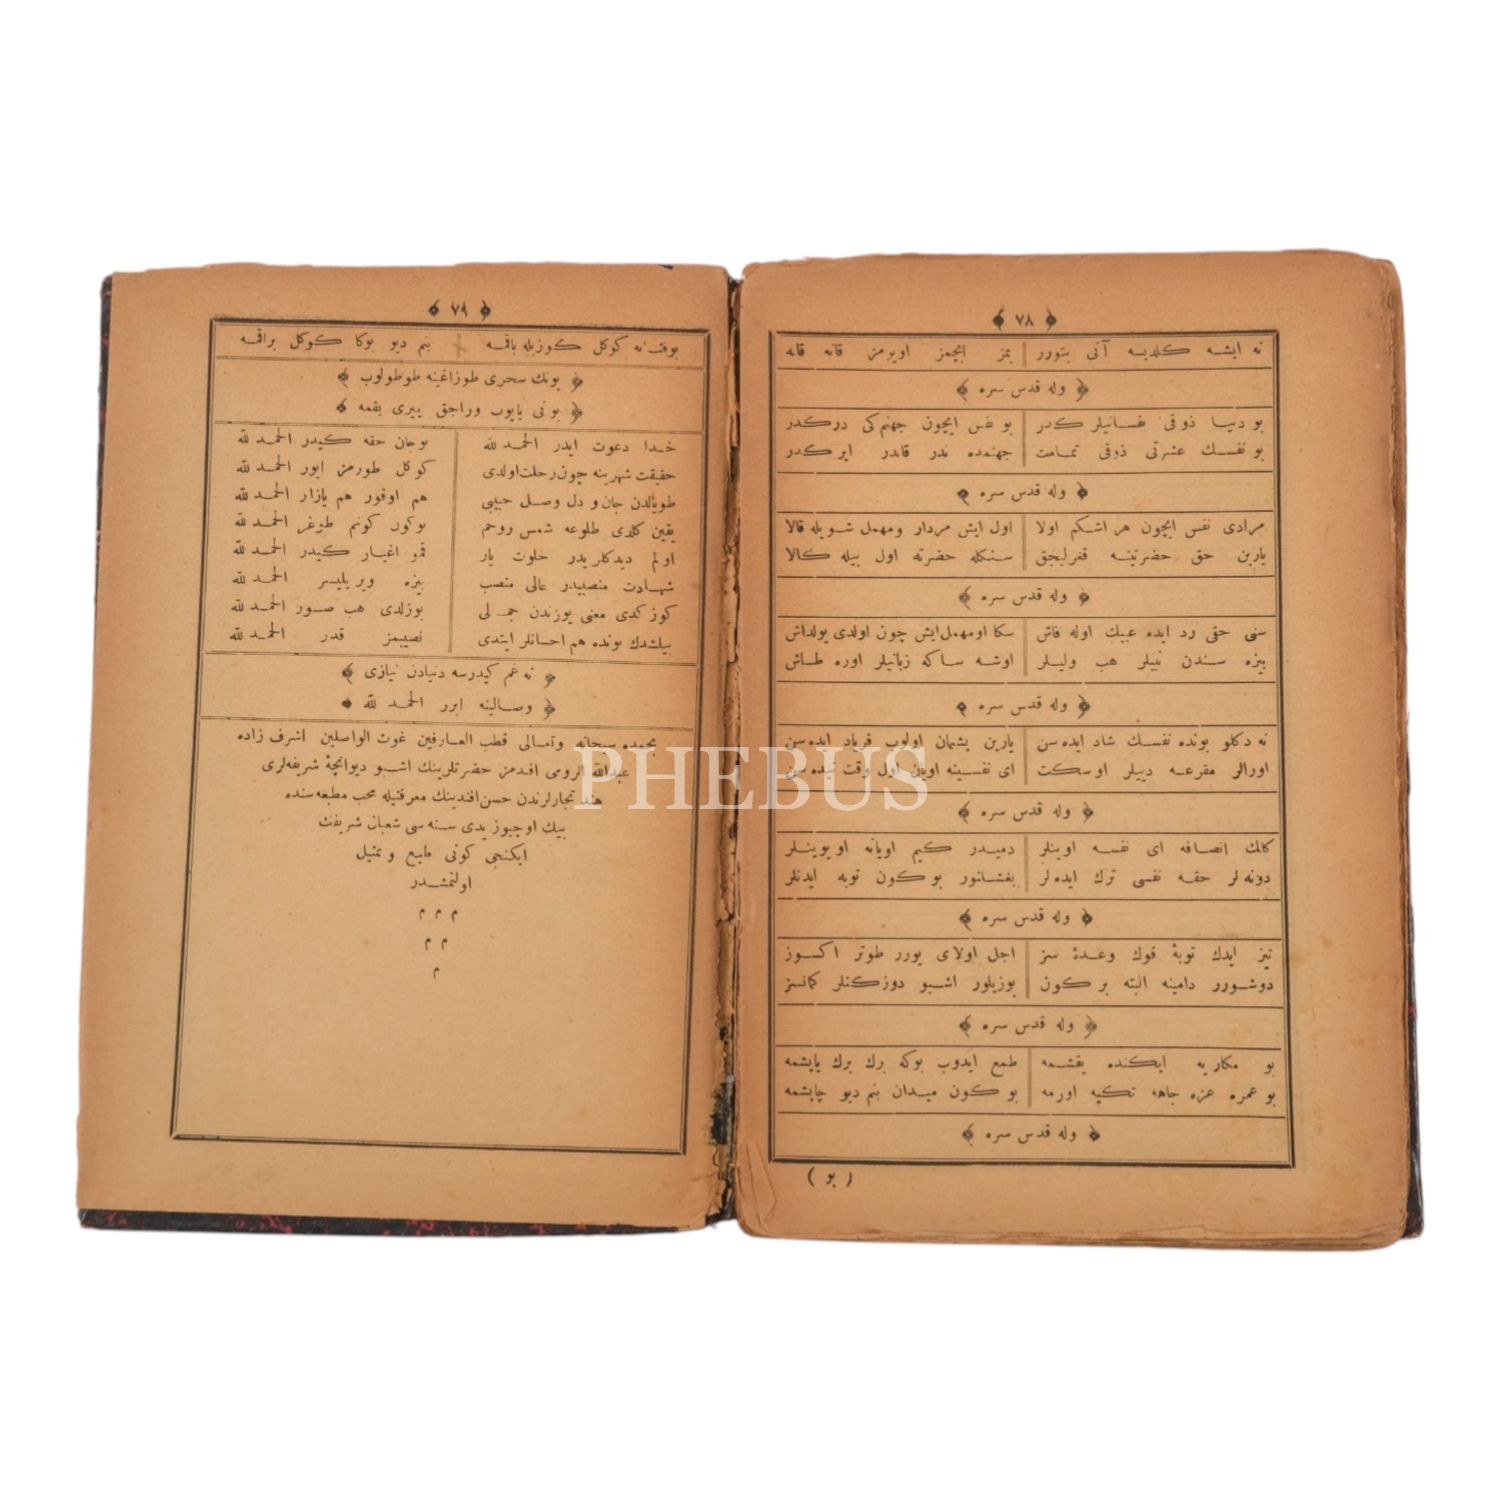 ﴿ ٧٨ ﴾
نه ايشه كلديسه آنى بتورر يمز ايچمز اويومز قانه قانه
﴿ وله قدس سره ﴾
بو دنيا ذوقى نفسانيلر كدر بو نفس ايچون جهنم كى در كدر
بو نفسك عشرتى ذوقى تمامت جهنمده ندر قاندر ايركدر
﴿ وله قدس سره ﴾
مرادى نفس ايچون هر اشكم اولا اول ايش مردار ومهمل شويله قالا
يارين حق حضرتينه قغرليجق سنكله حضرته اول بيله كالا
﴿ وله قدس سره ﴾
سنى حقى رد ايده عيبك اوله فاش سكا اومهمل ايش چون اولدى يولداش
بيزه سندن نبيلر هب وليلر اوشه ساكه زبانيلر اوره طاش
﴿ وله قدس سره ﴾
نه دكلو بونده نفسك شاد ايده سن يارين پشمان اولوب فرياد ايده سن
اورالر مقرعه دييلر اوسكت اى نفسينه اويان اول وقت نيده سن
﴿ وله قدس سره ﴾
كالك انصافه اى نفسه اوينلر دميدر كيم اويانه اويوينلر
دونه لر حقه نفسى ترك ايده لر بغشلانور بو كون توبه ايدنلر
﴿ وله قدس سره ﴾
تيز ايدك توبۀ قوك وعدۀ سز اجل اولاى يورر طوتر اكسوز
دوشورر دامينه البته بر كون بوزيلور اشبو دوزكنلر كمانسز
﴿ وله قدس سره ﴾
بو مكاريه ايكنده يقشمه طمع ايدوب بوكه برك برك ياپشمه
بو عمره عزه جاهه تكيه اورمه بو كون ميدان بنم ديو چاپشمه
﴿ وله قدس سره ﴾
( بو )
﴿ ٧٩ ﴾
كوكل كوزيله باقمه بنم ديو بوكا كوكل براقمه
﴿ بونك سحرى طوزاغينه طوطولوب ﴾
﴿ بونى ياپوب وراجق ييرى يقمه ﴾
خدا دعوت ايدر الحمد لله بوجان حقه كيدر الحمد لله
حقيقت شهرينه چون رحلت اولدى كوكل طورمز ايور الحمد لله
طويالدن جان و دل وصل حبيبى هم اوقور هم يازار الحمد لله
يقين كلدى طلوعه شمس روحم بوكون كونم طوغر الحمد لله
اولم ديدكلريدر خلوت يار قمو اغيار كيدر الحمد لله
شهادت منصبيدر عالى منصب بيزه ويريليسر الحمد لله
كوز كدى معنى يوزندن جمالى بوزلدى هب صور الحمد لله
بيلشدك بونده هم احسانلر ايتدى نصيبمز قدر الحمد لله
﴿ نه غم كيدرسه دنيادن نيازى ﴾
﴿ وصالينه ايرر الحمد لله ﴾
بحمده سبحانه وتعالى قطب العارفين غوث الواصلين اشرف زاده
عبدالله الرومى افندمز حضرتلرينك اشبو ديوانچۀ شريفه لرى
هند تجارلرندن حسن افندينك معرفتيله محب مطبعه سنده
بيك اوچيوز يدى سنه سى شعبان شريفك
ايكنجى كونى طبع و تمثيل
اولنمشدر
م م م
م م
م
PHEBUS